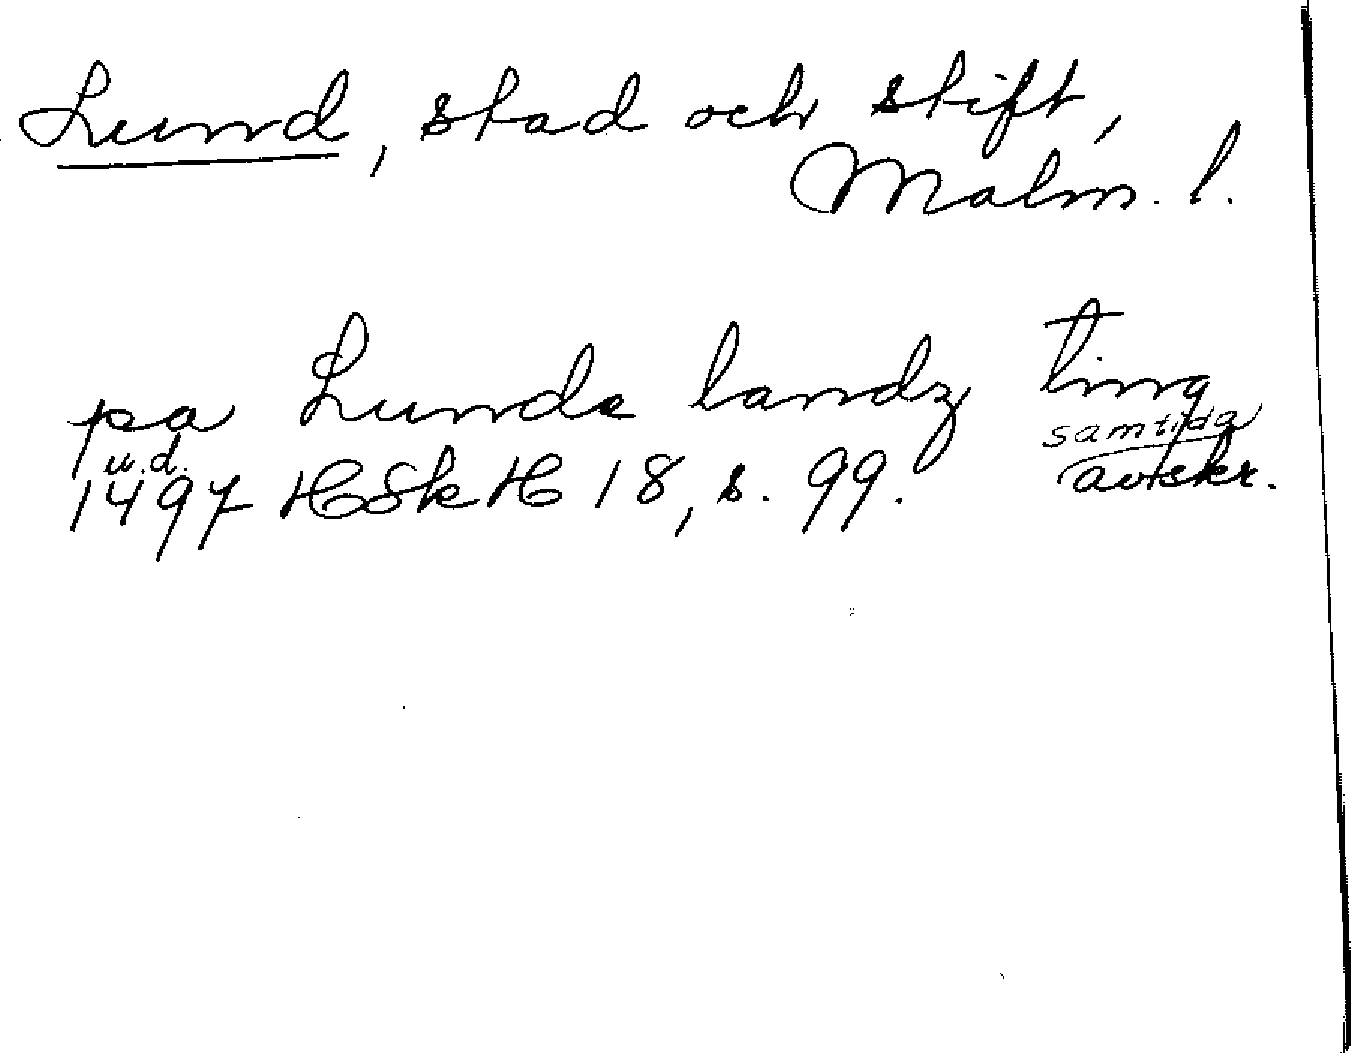 Lund, stad och stift,
Malm. l.
pa Lunde landz ting
u.d. samtida
1497 HSkH 18, s. 99. avskr.